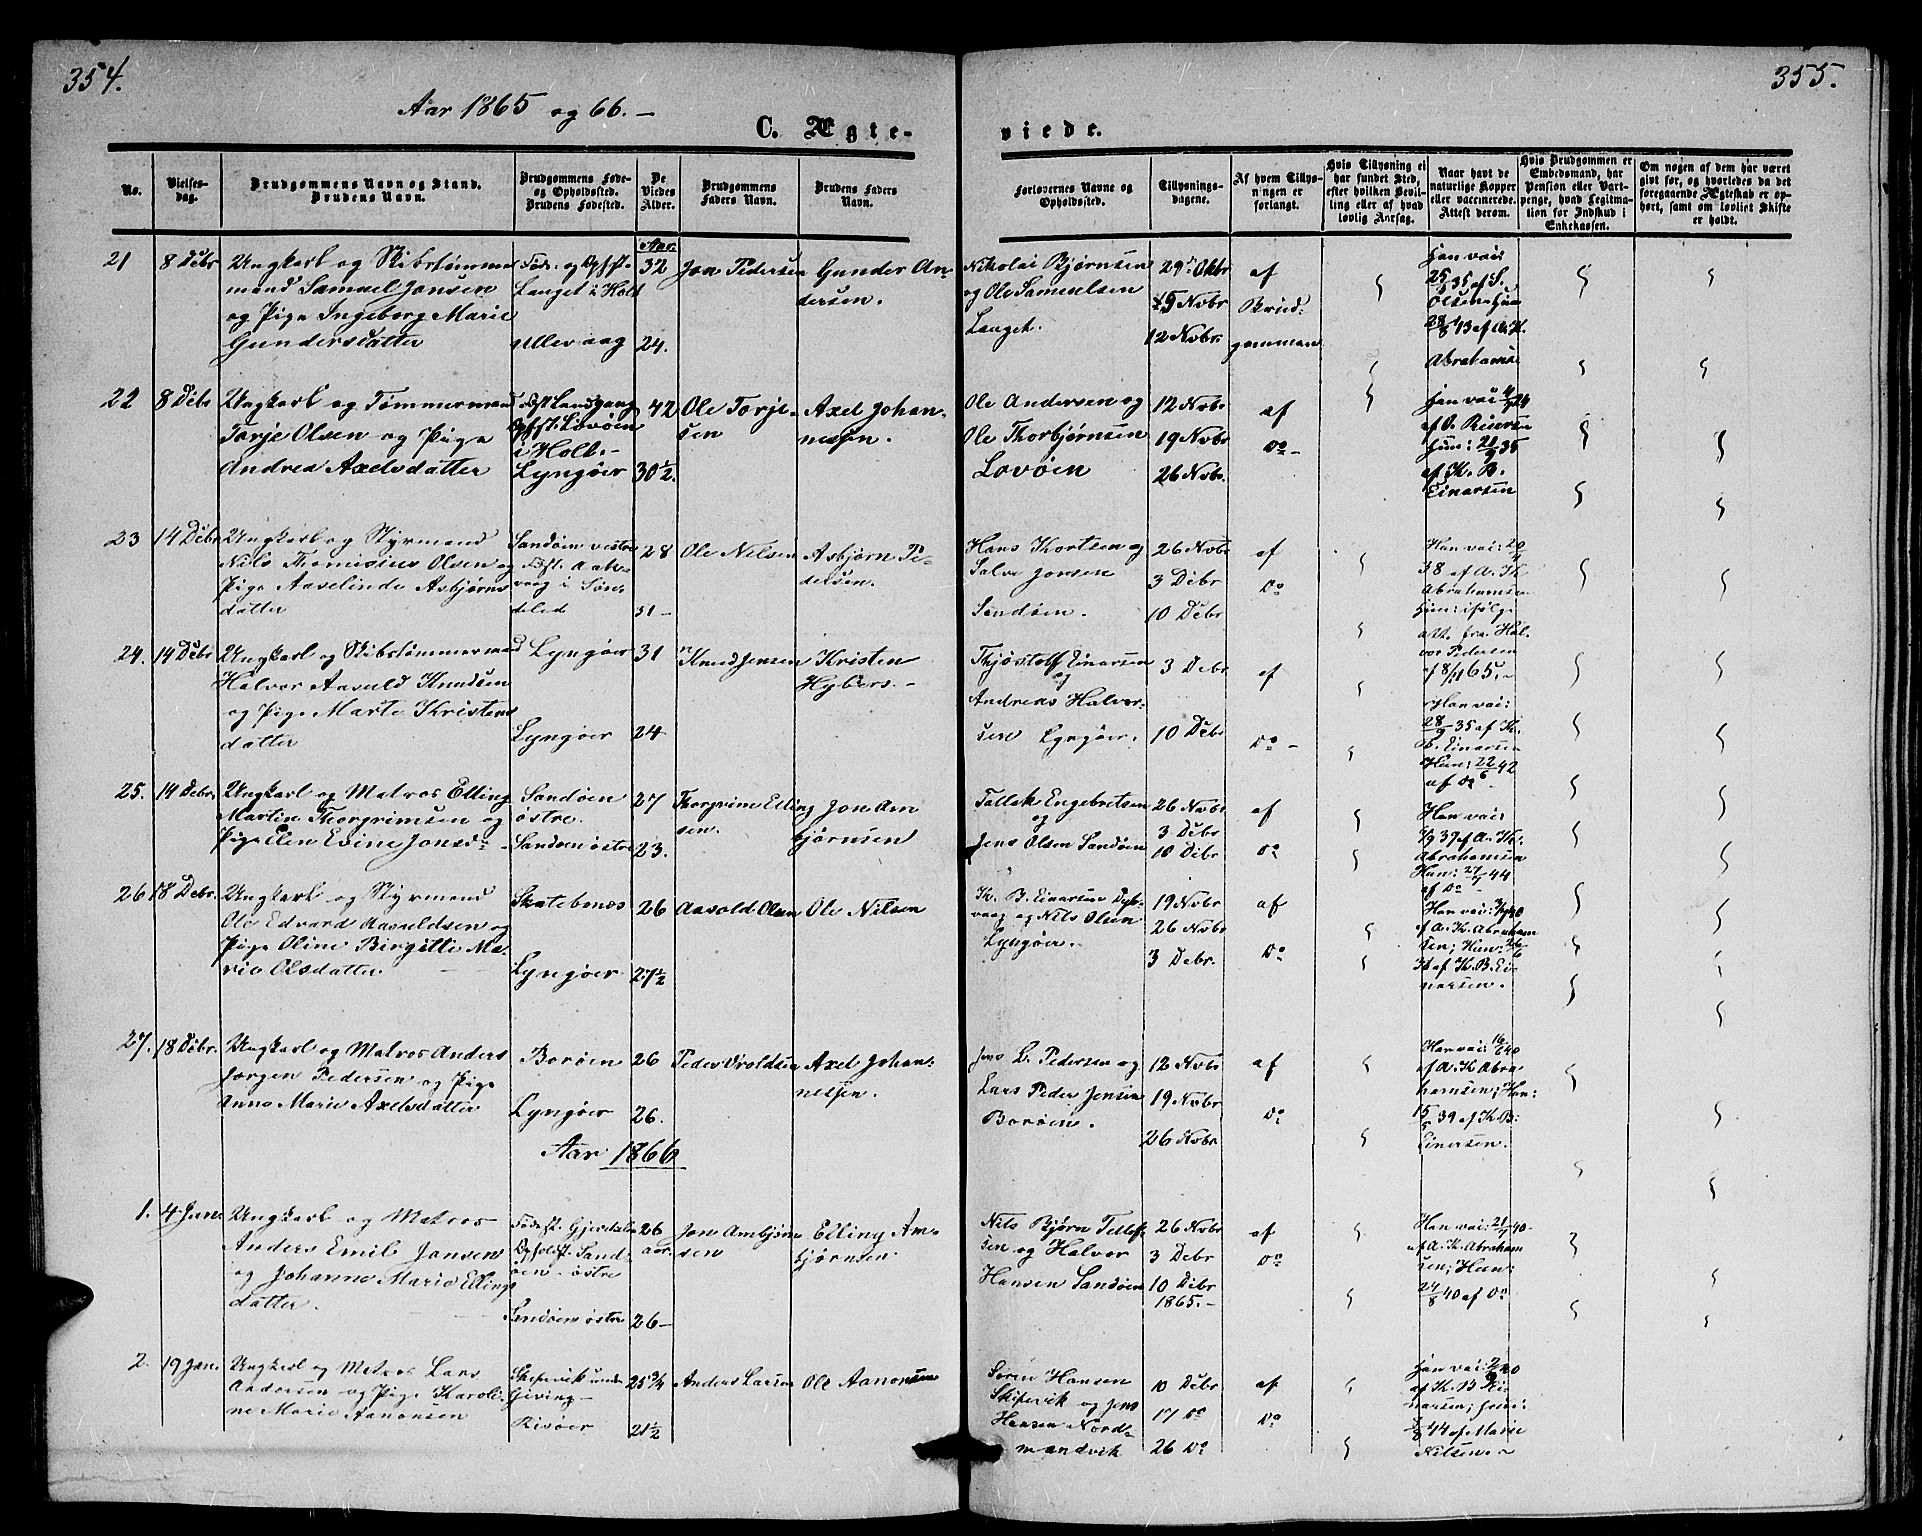 354.
355.
Aar 1865 og 66.
C. Ægte-
viede.
No.
Vielses-
dag.
Brudgommens Navn og Stand.
Brudens Navn.
Brudgommens Føde-
og Opholdssted.
Brudens Fødested.
De
Viedes
Alder.
Brudgommens
Faders Navn.
Brudens Faders
Navn.
Forlovernes Navne og
Opholdssted.
Tillysnings-
dagene.
Af hvem Tillys-
ningen er
forlangt.
Hvis Tillysning ei
har fundet Sted,
efter hvilken Bevil-
ling eller af hvad
lovlig Aarsag.
Naar havt de
naturlige Kopper
eller vaccinerede.
Attest derom.
Hvis Brudgommen er
Embedsmand, har
Pension eller Vart-
penge, hvad Legitima-
tion for Indskud i
Enkekassen.
Om nogen af dem har været
givt før, og hvorledes da det
foregaaende Ægteskab er op-
hørt, samt om lovligt Skifte
er holdt.
21
8 Debr
Ungkarl og Skibstømmer
mand Samuel Jonsen
og Pige Ingeborg Marie
Gundersdatter
Føde- og Opst.
Lauget i Holt
Ullevaag
Aar.
32
24.
Jon Pedersen
Gunder An-
dersen.
Nikolai Bjørnsen
og Ole Samuelsen
Lauget.
29 Oktbr
5 Novbr
12 Novbr.
af
Brud-
gommen
Han vac:
25/5 35 af S.
Olsen Hun
28/8 43 af A. K.
Abrahams.
22
8 Debr
Ungkarl og Tømmermand
Torje Olsen og Pige
Andrea Axelsdatter
Fst. Landgang
Opst. Lovøen
i Holt.-
Lyngøer
42
30½.
Ole Torje-
sen
Axel Johan-
nessen.
Ole Andersen og
Ole Thorbjørnsen
Lovøen
12 Novbr
19 Novbr
26 Novbr.
af
Do-
af K. B.
Einarsen
23
14 Debr
Ungkarl og Styrmand
Nils Thomasius Olsen og
Pige Aaselinde Asbjørns
datter
Sandøen vestre
vaag i Søn-
deled
28
31-
Ole Nilsen
Asbjørn Pe-
dersen.
Hans Kortsen og
Salve Jonsen
Sandøen.
26 Novbr
3 Debr
10 Debr
af
Do
Han vac: 20/4
38 af A. K.
Abrahamsen
Hun: ifølge
att. fra Hal-
vor Pedersen
af 8/11 65.-
24.
14 Debr
Ungkarl og Skibstømmermand
Halvor Aasuld Knudsen
og Pige Marte Kristens
datter
Lyngøer
Lyngøer
31
24
Knud Jensen
Kristen
Hybers.-
Thjøstolf Einarsen
og
Andreas Halvor-
sen Lyngøer.
3 Debr
10 Debr
af
Do-
Han vac:
28/9 35 af K.
B. Einarsen
Hun: 22/6 42
af Do.
25.
14 Debr.
Ungkarl og Matros Elling
Martin Thorgrimsen og
Pige Elen Eline Jonsd-
Sandøen
østre.
Sandøen østre
27
23.
Thorgrim Elling
sen.
Jon Am
bjørnsen
Tallak Engebretsen
og
Jens Olsen Sandøen
26 Novbr
3 Debr
10 Debr
af
Do
Han vac:
39 af A. K.
Abrahamsen
Hun: 27/7 44
af Do
26
18 Debr.
Ungkarl og Styrmand
Ole Edvard Aasuldsen og
Pige Oline Birgitte Ma-
rie Olsdatter
Skatebenes
Lyngøer
26
27½
Aasold Olsen
Ole Nilsen
K. B. Einarsen Dyb-
vaag og Nils Olsen
Lyngøer.
19 Novbr
26 Novbr
3 Debr.
af
Do
Han vac:
af A. K. Abraham
sen; Hun:
38 af K. B. Ei-
narsen.
27.
18 Debr.
Ungkarl og Matros Anders
Jørgen Pedersen og Pige
Anna Marie Axelsdatter
Borøen
Lyngøer
26
26.
Peder Vroldsen
Axel Johan-
nessen.
Jens L. Pedersen og
Lars Peder Jensen
Borøen.
12 Novbr
19 Novbr
26 Novbr
af
Do
Han vac: 16/6 40
af A. K Abra
hamsen; Hun:
15/5 39 af K B:
Einersen.
Aar 1866
1.
4 Jan.
Ungkarl og Matros
Anders Emil Jonsen
og Johanne Marie Ellings
datter.
Fødest. Gjerdalen
Opholdst. Sand-
øen østre
Sandøen østre
26
aar.
26-
Jon Ambjørn
sen
Elling Am-
bjørnsen
Nils Bjørn Tellef-
sen og Halvor
Hansen Sandøen
26 Novbr
3 Debr
10 Debr
1865.-
af
Do
Han vac: 21/7 40-
af A. K. Abraham
sen; Hun:
24/8 40 af Do
2.
19 Jan.
Ungkarl og Matros Lars
Andersen og Pige Karoli-
ne Marie Aanonsen
Skiftevik under
Gjeving-
Risøer
25¾
21½
Anders Larsen
Ole Aanonsen
Søren Hansen
Skiftevik og Jens
Hansen Nord-
mandvik
10 Debr
17 Do
26 Do
af
Do
af K. B Ei-
narsen; Hun:
44 af Marie
Nilsen.-